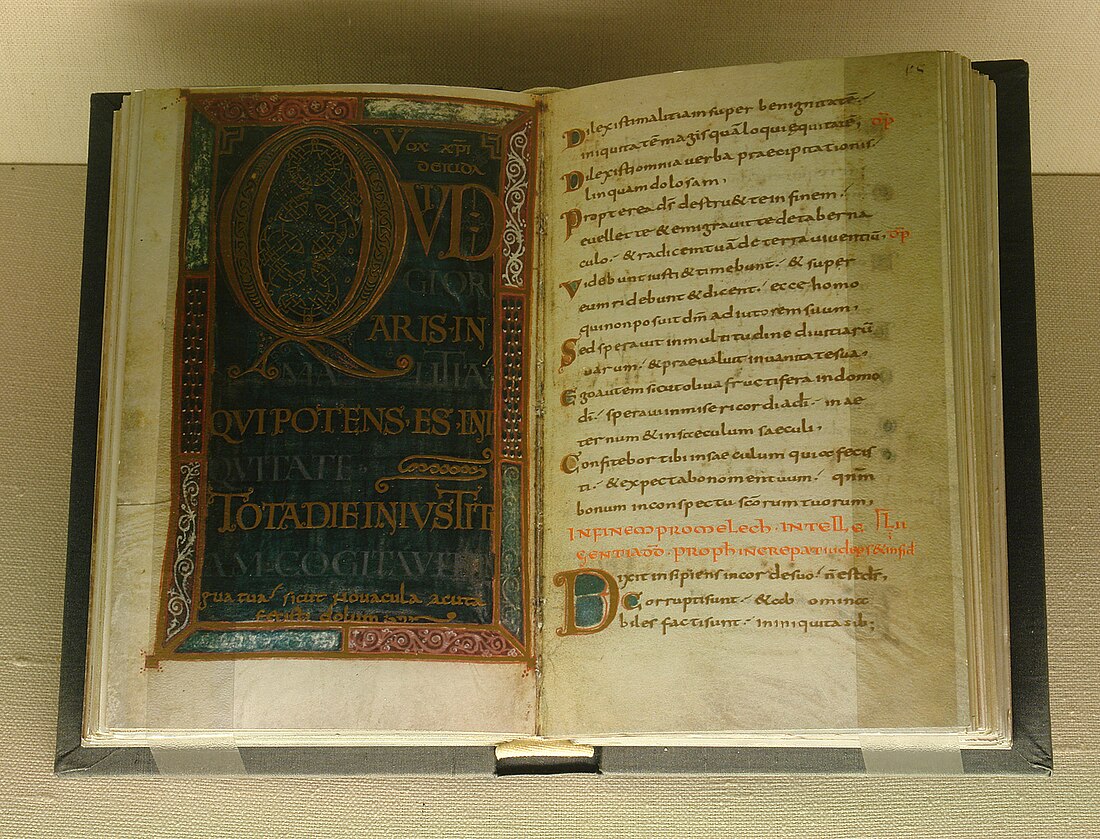 VOX XPI
QUID
GLOR
ARIS·IN
MA LITIA
QVI POTENS·ES·INI
QVITATE
TOTA DIE INIVSTIT
AM·COGITAVIT
gua tua / sicut novacula acuta
fecisti dolum
Dilexisti malitiam super benignitatē
iniquitatē magis quā loqui equitatē;
Dilexisti omnia verba praecipitationis
linguam dolosam;
Propterea ds̄ destru& te in finem
evellet te & emigravit te de taberna
culo · & radicem tuā de terra viventiū;
Videbunt iusti & timebunt · & super
eum ridebunt & dicent · ecce homo
qui non posuit dm̄ adiutorem suum;
Sed speravit in multitudine divitiarū
uarum · & praevaluit in vanitate sua
Ego autem sicut oliva fructifera in domo
dī · speravi in misericordia dī · in ae
ternum & in saeculum saeculi;
Confitebor tibi in saeculum quia fecis
ti · & expectabo nomen tuum · qnm̄
bonum in conspectu scōrum tuorum;
IN FINEM PRO MELECH · INTELLE
Dixit insipiens in corde suo · n̄ est ds̄;
Corrupti sunt · & ab omina
biles facti sunt · in iniquitatib;